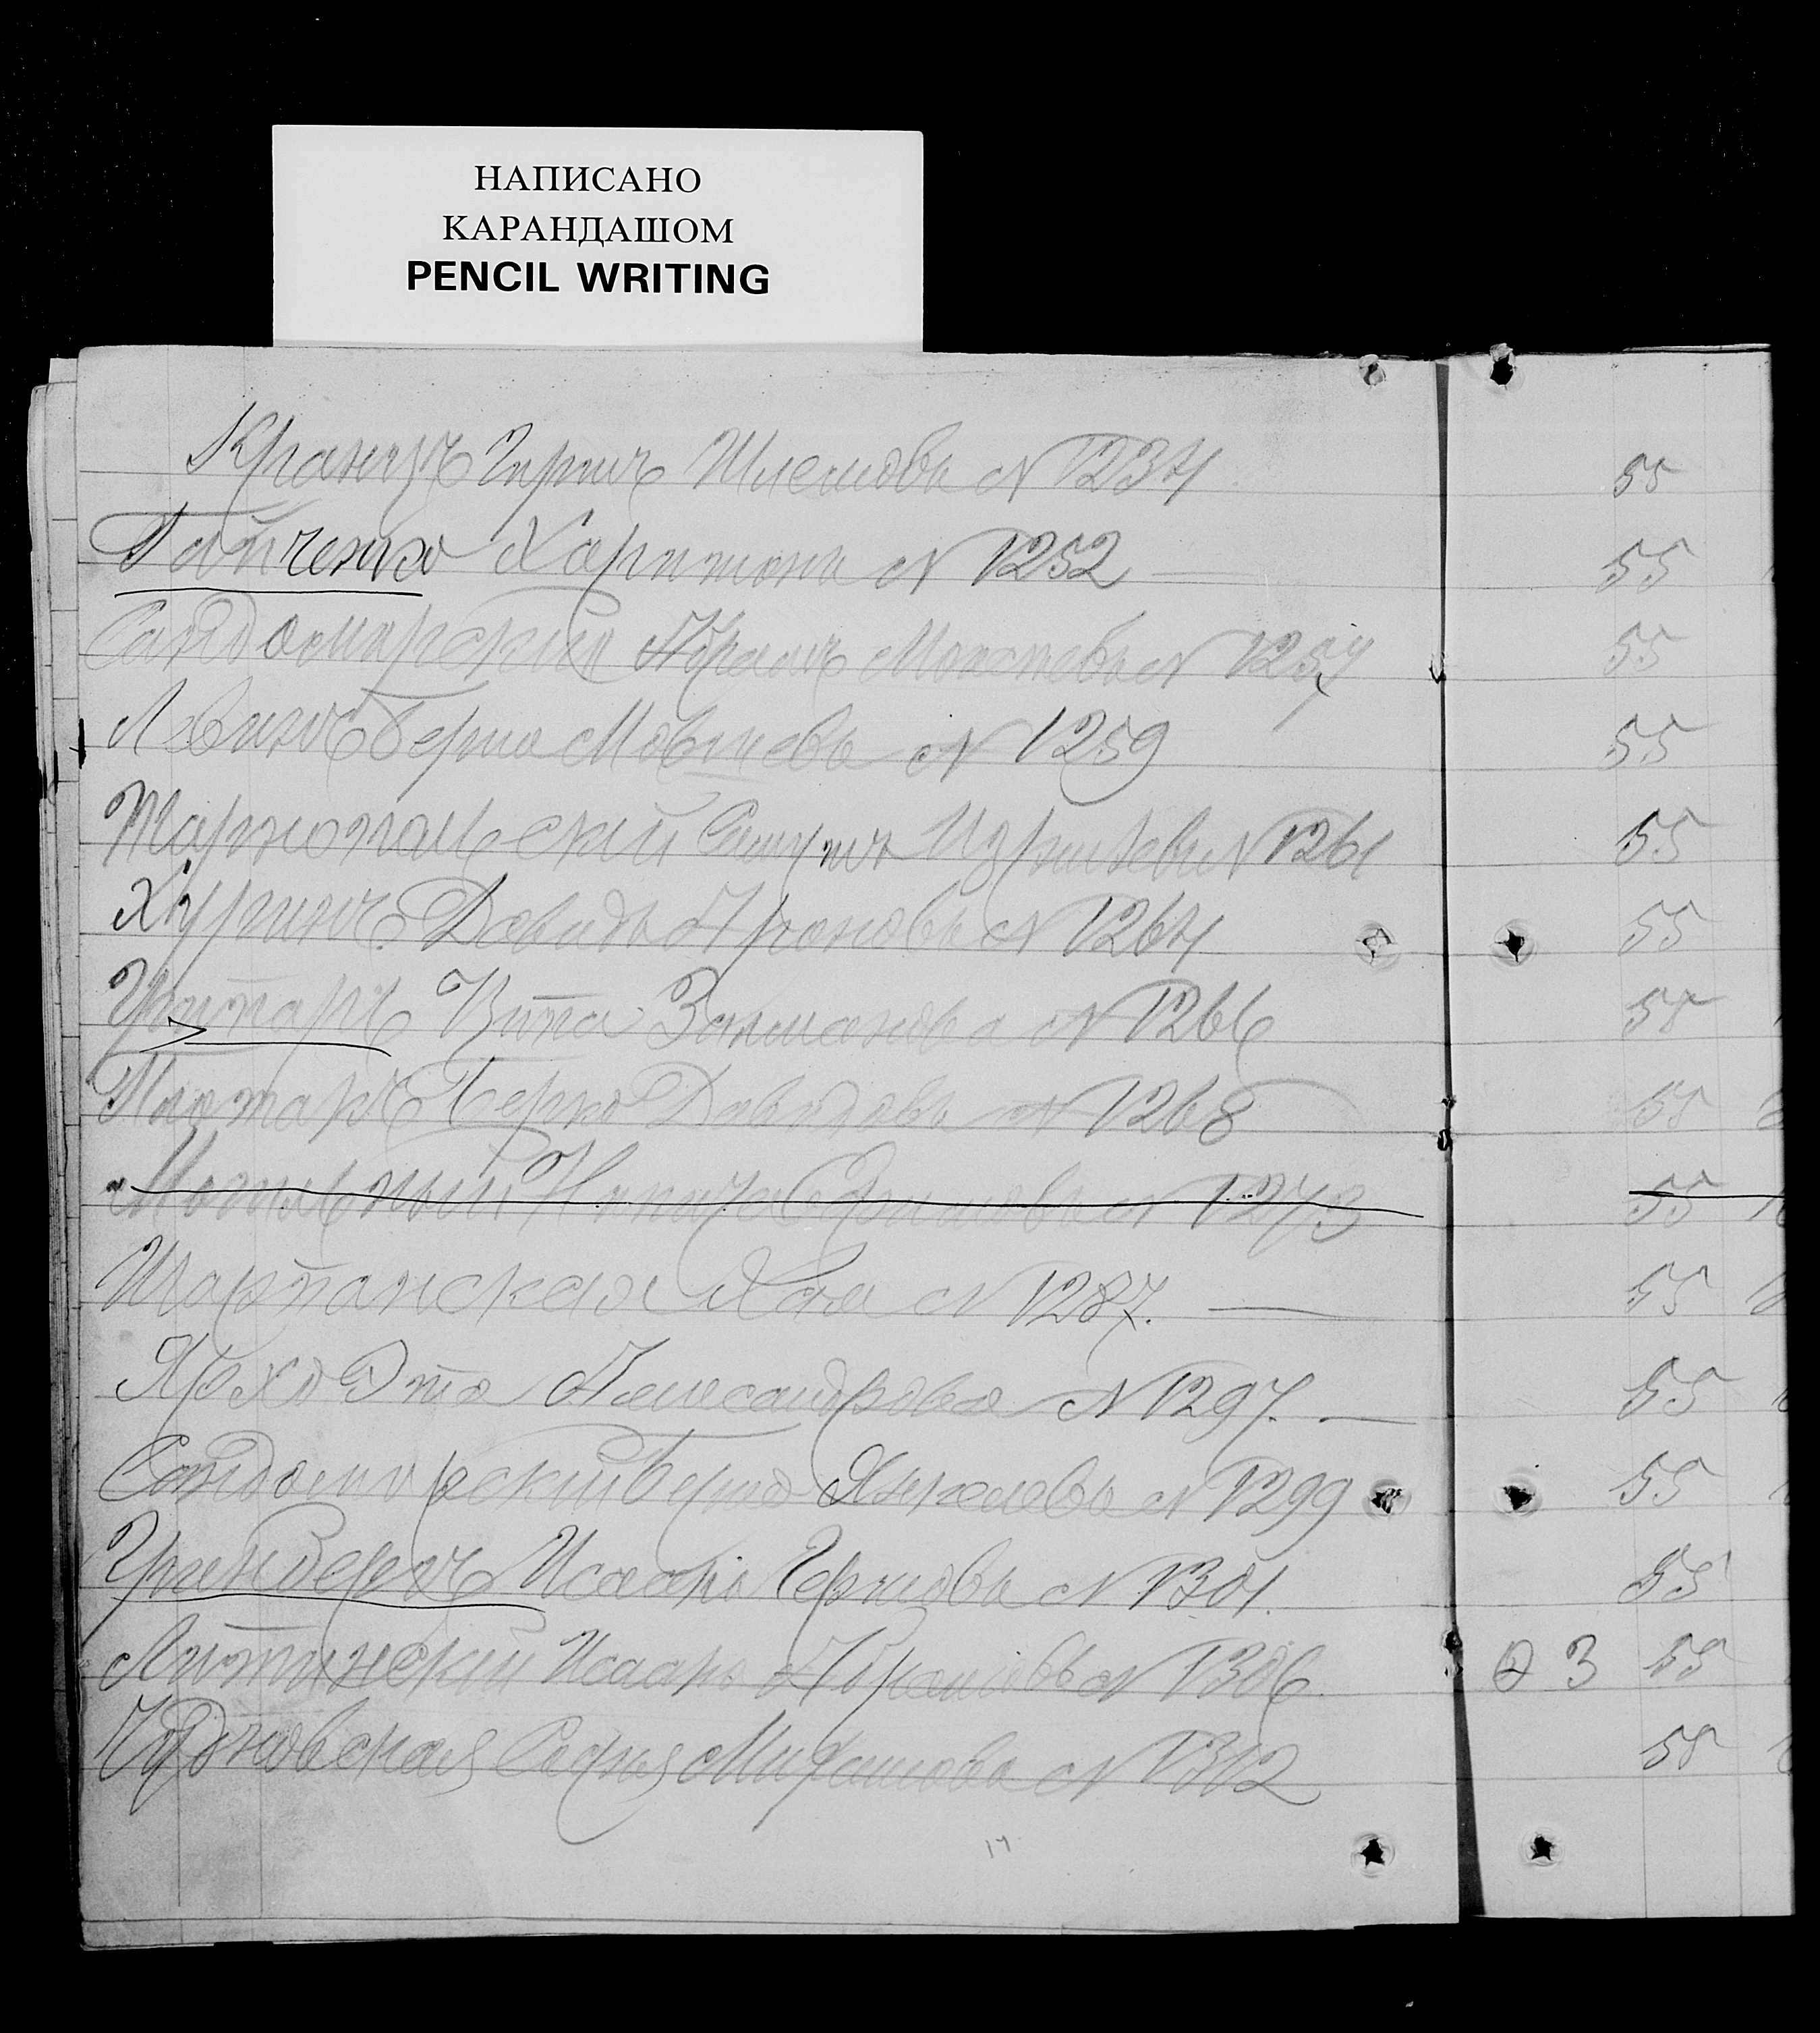 НАПИСАНО
КАРАНДАШОМ
PENCIL WRITING
Кранцъ Гершъ Шлемовъ N 1234 55
Гайченко Харитонъ N 1252 — 55
Сандомирскій Абрамъ Мошковъ N 1257 55
Левинъ Берко Мовшевъ N 1259 55
Тарнопольскій Израилевъ N 1261 55
Хуринъ Давидъ Ароновъ N 1264 55
Вита Залманова N 1266 55
Берко Давидовъ N 1268 55
N 1273 55
Шарпанская Хая N 1287. — 55
Эта Александрова N 1297. — 55
Сандомирскій Берко Янкелевъ N 1299 55
Гринбергъ Исаакъ Гершковъ N 1301. 55
Литинскій Исаакъ Абрамовъ N 1306 3 55
Чудновская Софія N 1312 55